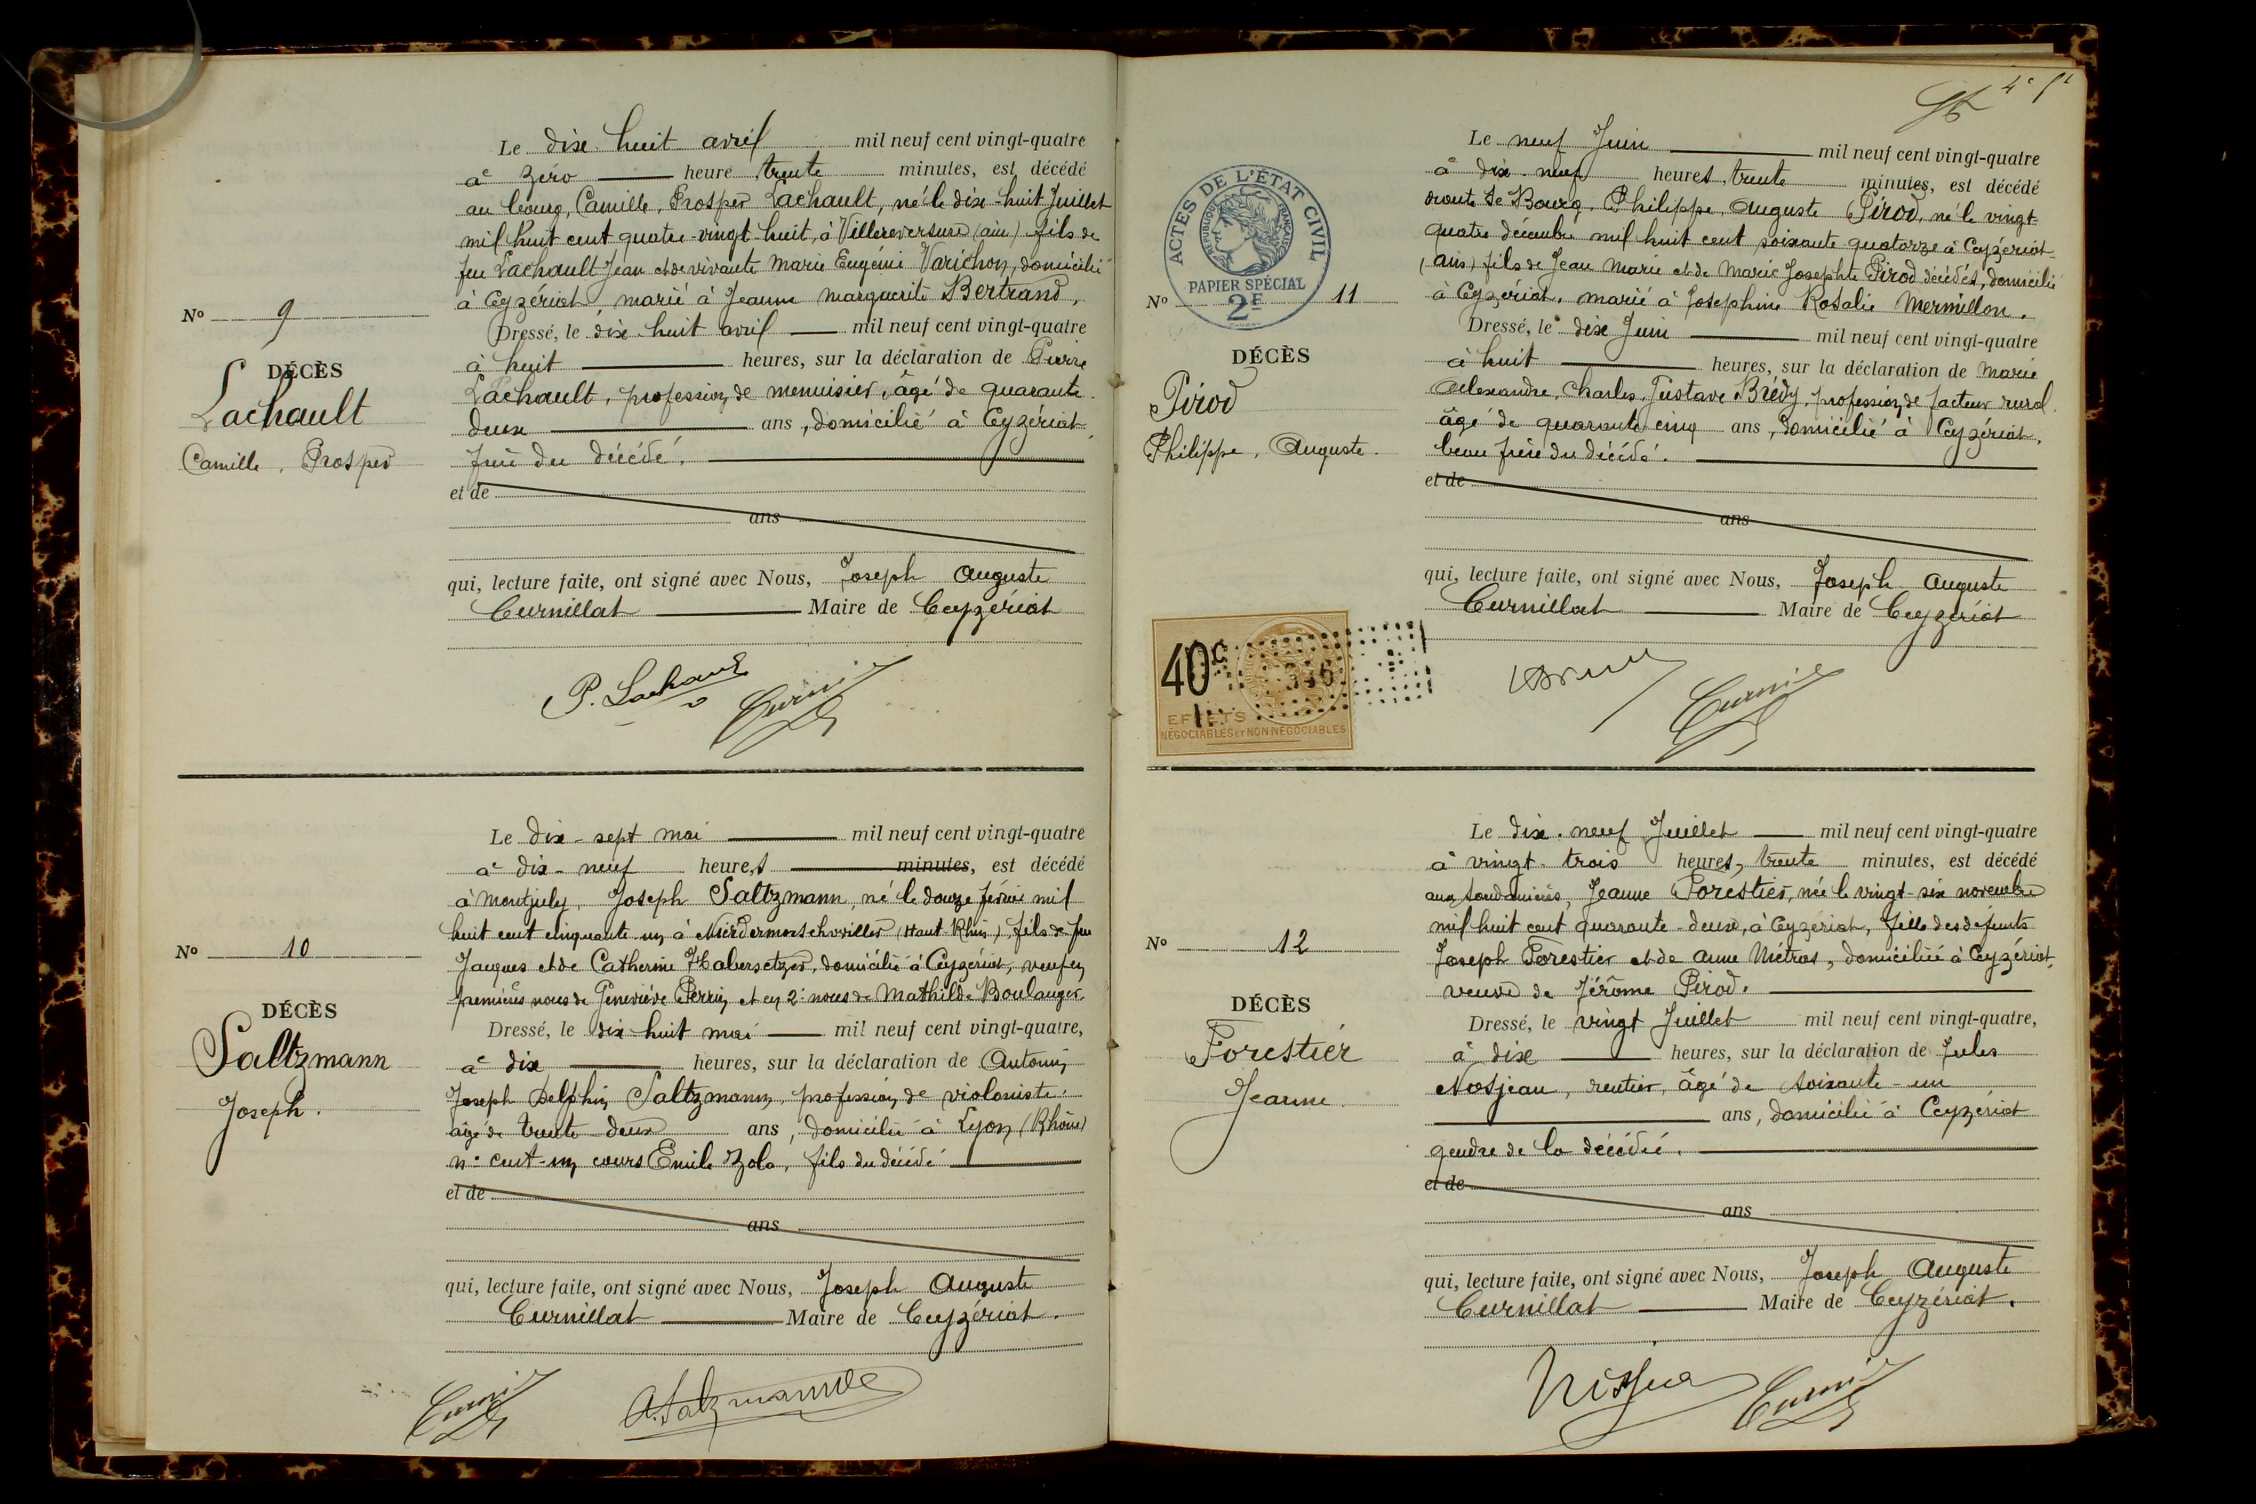 Le dix huit avril mil neuf cent vingt-quatre
à zéro heure trente minutes, est décédé
au bourg, Camille, Prosper Lachault, né le dix-huit Juillet
mil huit cent quatre-vingt-huit, à Villereversure (ain) fils de
feu Lachault Jean et de vivante Marie Eugénie Varichon, domicilié
à Ceyzériat marié à Jeanne marguerite Bertrand,
Nº 9
Dressé, le dix huit avril mil neuf cent vingt-quatre
à huit heures, sur la déclaration de Pierre
DÉCÈS
Lachault
Camille, Prosper
Lachault, profession de menuisier, âgé de quarante
deux ans, domicilié à Ceyzériat,
frère du décédé.
et de
ans
qui, lecture faite, ont signé avec Nous, Joseph Auguste
Curnillat Maire de Ceyzériat
P. Lachault
Le dix-sept mai mil neuf cent vingt-quatre
à dix-neuf heures minutes, est décédé
à Montjuly, Joseph Saltzmann, né le douze février mil
huit cent cinquante un à Niedermorschwiller (Haut-Rhin), fils de feu
Jacques et de Catherine Habersetzer, domicilié à Ceyzériat, veuf en
premières noces de Geneviève Perrin et en 2e noces de Mathilde Boulanger.
Nº 10
Dressé, le dix huit mai mil neuf cent vingt-quatre,
à dix heures, sur la déclaration de Antonin
DÉCÈS
Saltzmann
Joseph.
Joseph Delphin Saltzmann, profession de violoniste
âgé de trente-deux ans, domicilié à Lyon (Rhône)
nº cent-un cours Emile Zola, fils du décédé
et de
ans
qui, lecture faite, ont signé avec Nous, Joseph Auguste
Curnillat Maire de Ceyzériat.
A. Saltzmann
Le neuf Juin mil neuf cent vingt-quatre
à dix-neuf heures, trente minutes, est décédé
route de Bourg, Philippe, Auguste Pirod, né le vingt-
quatre décembre mil huit cent soixante-quatorze à Ceyzériat
(ain) fils de Jean Marie et de Marie Josephte Pirod décédés, domicilié
à Ceyzériat, marié à Josephine Rosalie Mermillon.
ACTES DE L'ÉTAT CIVIL
RÉPUBLIQUE FRANÇAISE
PAPIER SPÉCIAL
2F
Nº 11
Dressé, le dix Juin mil neuf cent vingt-quatre
à huit heures, sur la déclaration de Marie
DÉCÈS
Pirod
Philippe, Auguste.
Alexandre, Charles, Gustave Brédy, profession de facteur rural
âgé de quarante cinq ans, domicilié à Ceyzériat,
beau frère du décédé.
et de
ans
qui, lecture faite, ont signé avec Nous, Joseph Auguste
Curnillat Maire de Ceyzériat
40c
EFFETS
NÉGOCIABLES ET NON NÉGOCIABLES
Le dix-neuf Juillet mil neuf cent vingt-quatre
à vingt-trois heures, trente minutes, est décédé
Jeanne Forestier, née le vingt-six novembre
mil huit cent quarante-deux, à Ceyzériat, fille des défunts
Joseph Forestier et de Anne Métras, domiciliée à Ceyzériat,
veuve de Jérôme Pirod.
Nº 12
Dressé, le vingt Juillet mil neuf cent vingt-quatre,
à dix heures, sur la déclaration de Jules
DÉCÈS
Forestier
Jeanne.
Nosjean, rentier, âgé de soixante-un
ans, domicilié à Ceyzériat
gendre de la décédée.
et de
ans
qui, lecture faite, ont signé avec Nous, Joseph Auguste
Curnillat Maire de Ceyzériat.